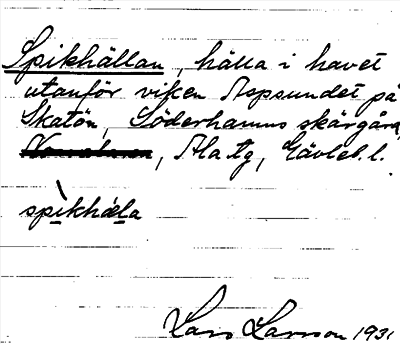 Spikhällan, hälla i havet
utanför viken Aspsundet på
Skatön, Söderhamns skärgård,
, Ala tg, Gävleb. l.
spìkhäla
Lars Larsson 1931